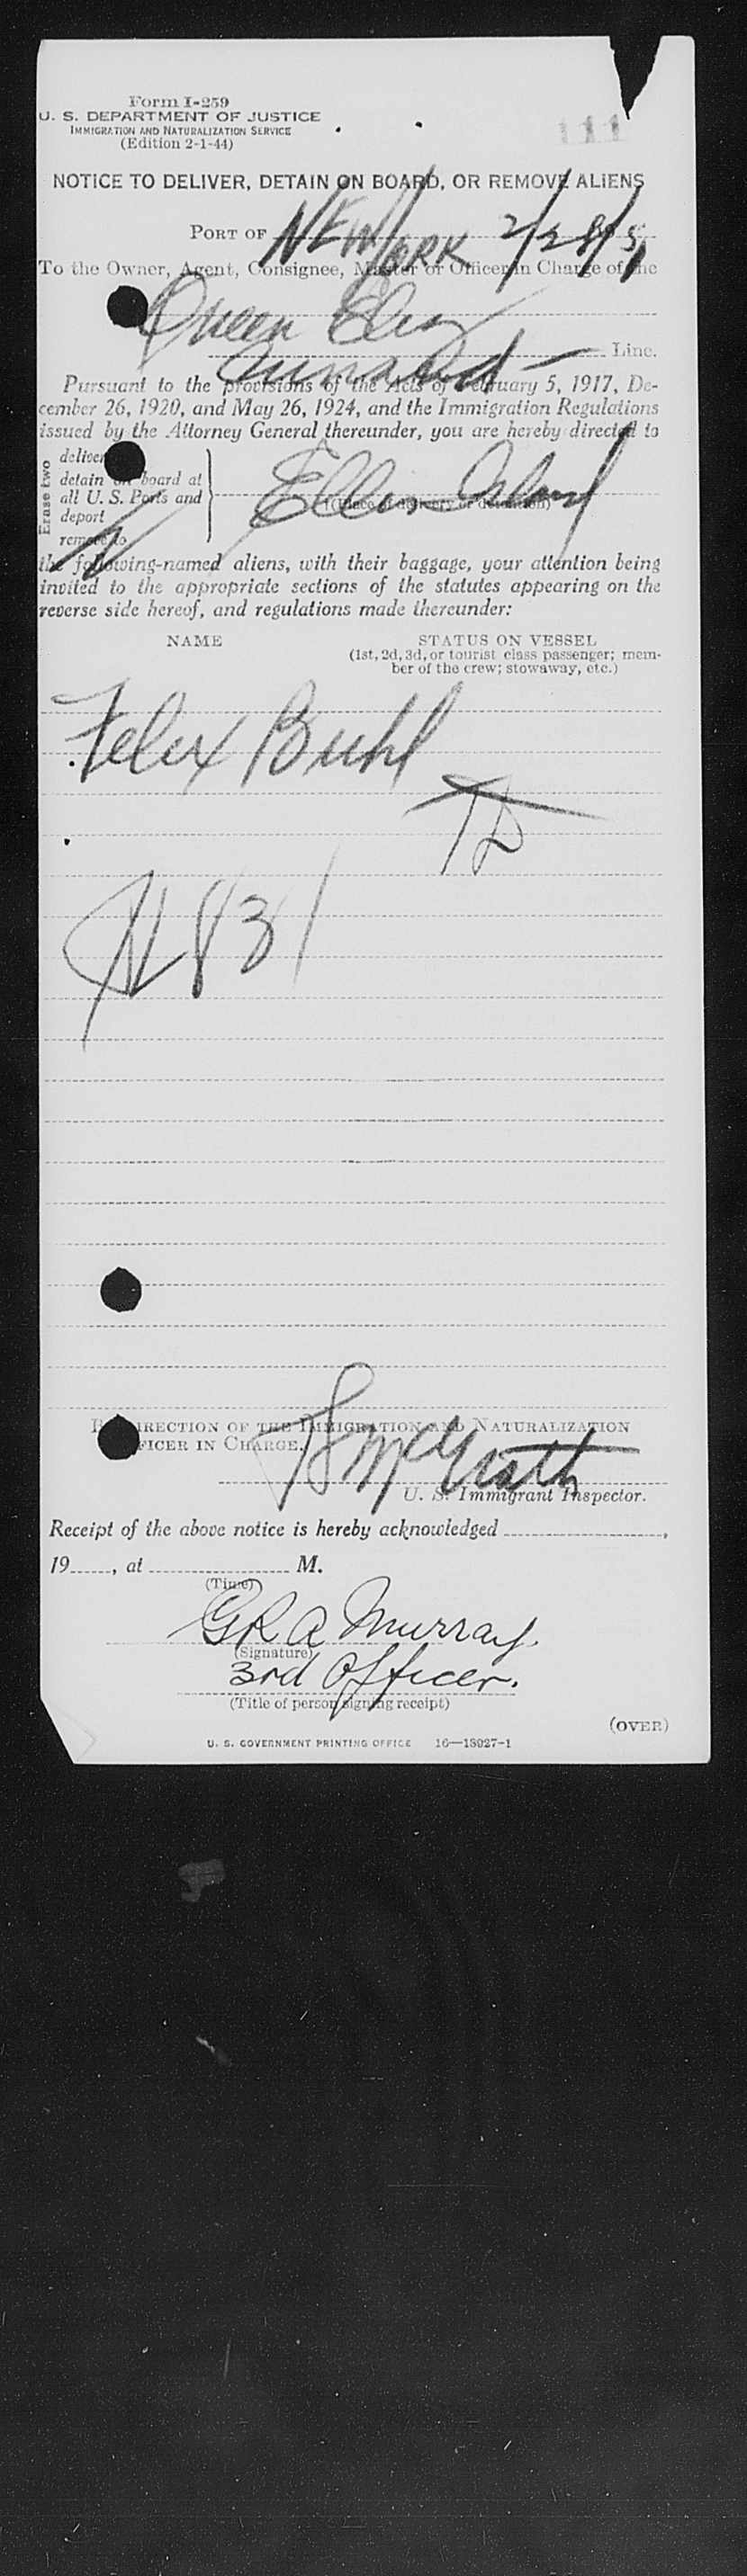 Form I-259
U. S. DEPARTMENT OF JUSTICE
IMMIGRATION AND NATURALIZATION SERVICE
(Edition 2-1-44)
111
NOTICE TO DELIVER, DETAIN ON BOARD, OR REMOVE ALIENS
PORT OF NEW YORK 2/28/51
To the Owner, Agent, Consignee, Master or Officer in Charge of the
Queen Eliz
Cunard Line.
Pursuant to the provisions of the Acts of February 5, 1917, De-
cember 26, 1920, and May 26, 1924, and the Immigration Regulations
issued by the Attorney General thereunder, you are hereby directed to
Erase two
deliver
detain on board at
all U. S. Ports and
deport
remove to
Ellis Island
(Place of delivery or detention)
the following-named aliens, with their baggage, your attention being
invited to the appropriate sections of the statutes appearing on the
reverse side hereof, and regulations made thereunder:
NAME STATUS ON VESSEL
(1st, 2d, 3d, or tourist class passenger; mem-
ber of the crew; stowaway, etc.)
Felix Buhl
831
DIRECTION OF THE IMMIGRATION AND NATURALIZATION
OFFICER IN CHARGE.
McGrath
U. S. Immigrant Inspector.
Receipt of the above notice is hereby acknowledged ,
19 , at M.
(Time)
G R A Murray.
(Signature)
3rd Officer.
(Title of person signing receipt)
(OVER)
U. S. GOVERNMENT PRINTING OFFICE 16—18027-1